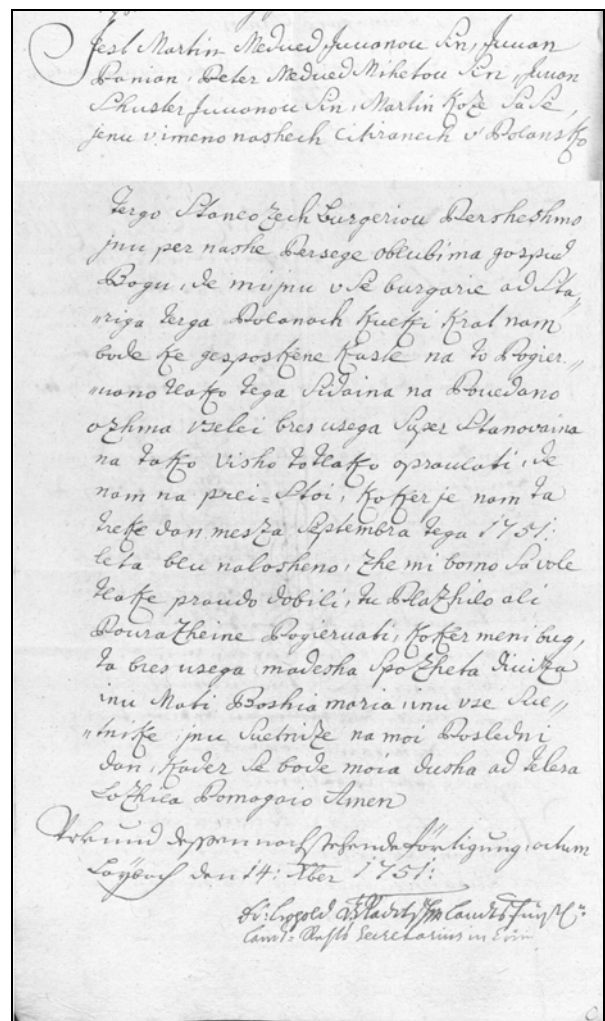 Jest Martin Medued Juuanou Sin, Juuan
Banian, Peter Medued Mihetou Sin, Juuan
Shuster Juuanou Sin, Martin Koze Sa Se,
jenu vimeno nashech Citiranech v Polansko
tergo Staneozech Burgeriou Persheshmo
jnu per nashe Persege oblubima gospud
Bogu, de mi jnu vse burgarie od Sta„
„riga terga Polanach kuelki kral nam
bode ke gesposkene kasle na to Pogier„
„uano tlako tega Sidaina na Pouedano
ozhma vselei bres usega Super Stanovaina
na tako visho to tlako opraulati, de
nam na prei=Stoi, koker je nam ta
treke dan mesza Septembra tega 1751:
leta blu nalosheno, zhe mi bomo Sa vole
tlake praudo dobili, tu Plazhilo ali
Pourazheine Pogieruati, koker meni bug,
ta bres usega madesha Spozheta diuiza
inu Mati Boshia maria, inu vse Sue„
„tnike jnu Suetnize na moi Posledni
dan, kader Se bode moia dusha ad telesa
Lozhila Pomagaio Amen
Urkund dessen nachstehende förtigung, actum
Laÿbach den 14: Xber 1751:
Secretarius in